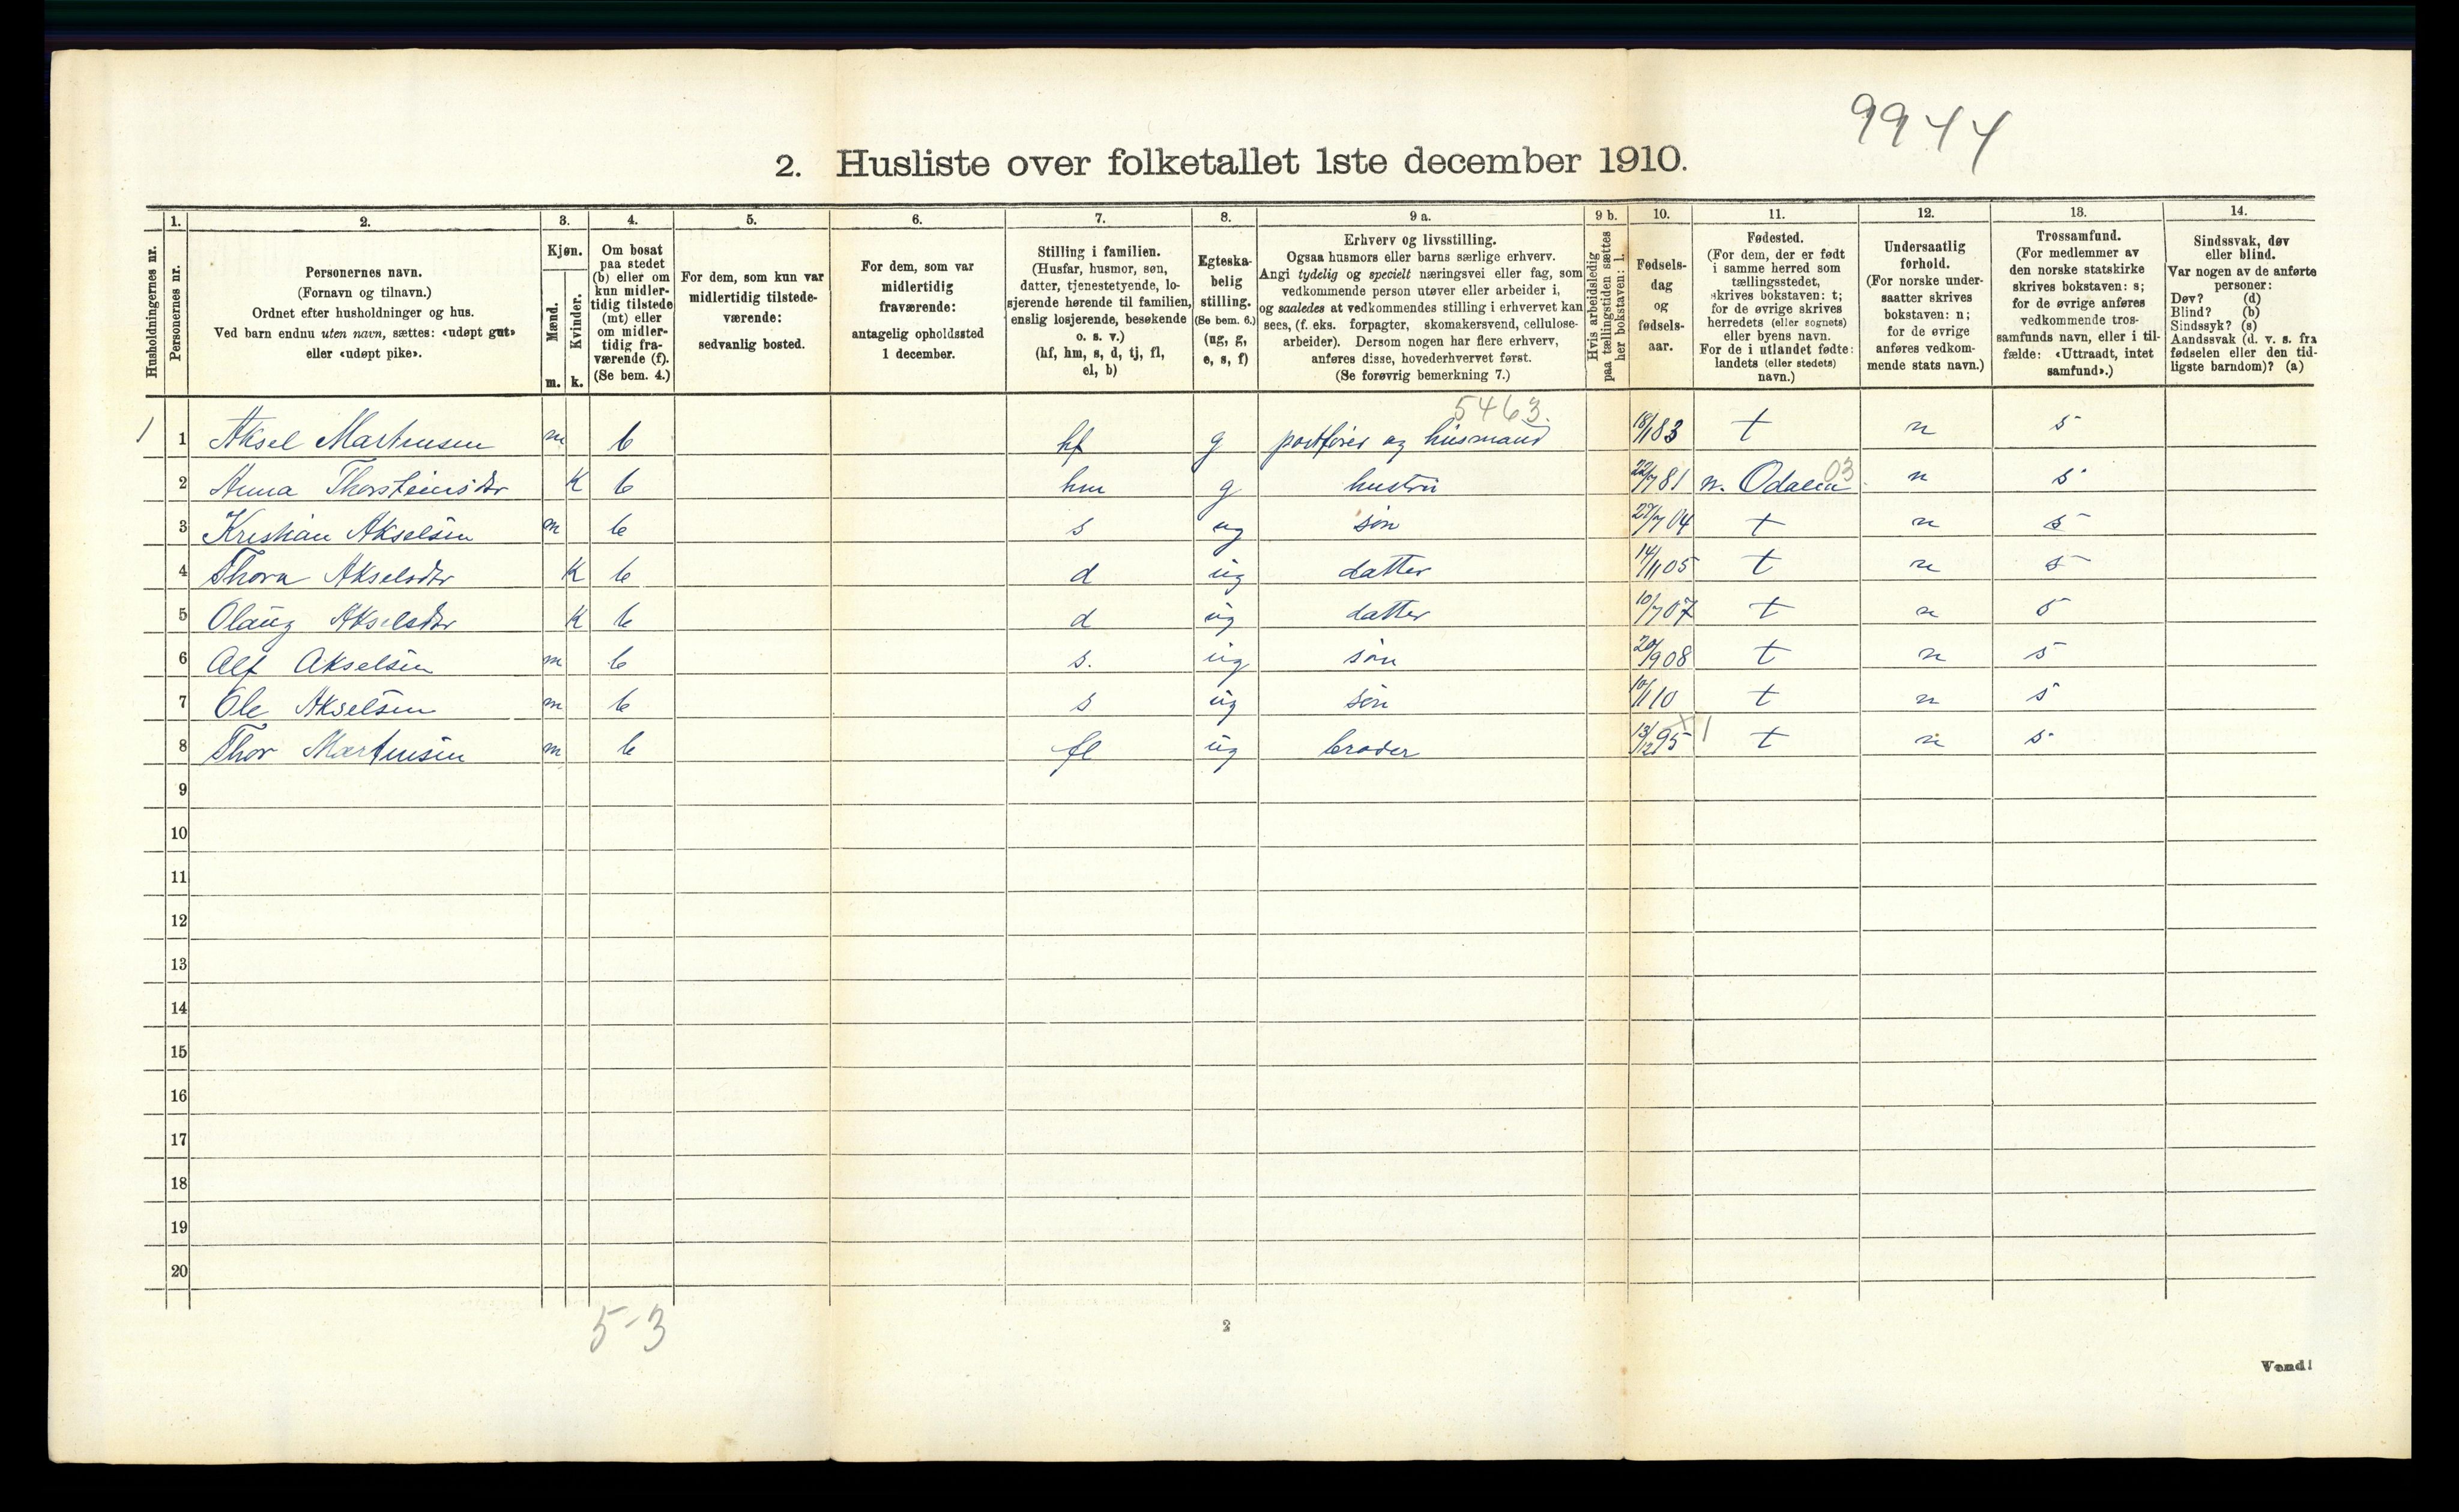 9944
2. Husliste over folketallet 1ste december 1910.
Husholdningernes nr.
1. Personernes nr.
2. Personernes navn. (Fornavn og tilnavn.) Ordnet efter husholdninger og hus. Ved barn endnu uten navn, sættes: «udøpt gut» eller «udøpt pike».
3. Kjøn. Mænd. m. Kvinder. k.
4. Om bosat paa stedet (b) eller om kun midler-tidig tilstede (mt) eller om midler-tidig fra-værende (f). (Se bem. 4.)
5. For dem, som kun var midlertidig tilstede-værende: sedvanlig bosted.
6. For dem, som var midlertidig fraværende: antagelig opholdssted 1 december.
7. Stilling i familien. (Husfar, husmor, søn, datter, tjenestetyende, lo-sjerende hørende til familien, enslig losjerende, besøkende o. s. v.) (hf, hm, s, d, tj, fl, el, b)
8. Egteska-belig stilling. (Se bem. 6.) (ug, g, e, s, f)
9 a. Erhverv og livsstilling. Ogsaa husmors eller barns særlige erhverv. Angi tydelig og specielt næringsvei eller fag, som vedkommende person utøver eller arbeider i, og saaledes at vedkommendes stilling i erhvervet kan sees, (f. eks. forpagter, skomakersvend, cellulose-arbeider). Dersom nogen har flere erhverv, anføres disse, hovederhvervet først. (Se forøvrig bemerkning 7.)
9 b. Hvis arbeidsledig paa tællingstiden sættes her bokstaven: l.
10. Fødsels-dag og fødsels-aar.
11. Fødested. (For dem, der er født i samme herred som tællingsstedet, skrives bokstaven: t; for de øvrige skrives herredets (eller sognets) eller byens navn. For de i utlandet fødte: landets (eller stedets) navn.)
12. Undersaatlig forhold. (For norske under-saatter skrives bokstaven: n; for de øvrige anføres vedkom-mende stats navn.)
13. Trossamfund. (For medlemmer av den norske statskirke skrives bokstaven: s; for de øvrige anføres vedkommende tros-samfunds navn, eller i til-fælde: «Uttraadt, intet samfund».)
14. Sindssvak, døv eller blind. Var nogen av de anførte personer: Døv? (d) Blind? (b) Sindssyk? (s) Aandssvak (d. v. s. fra fødselen eller den tid-ligste barndom)? (a)
5463.
1 1 Aksel Martinsen m b hf g postfører og husmand 18/1 83 t n s
2 Anna Thorsteinsdtr k b hm g hustru 22/7 81 n. Odalen 03 n s
3 Kristian Akselsen m b s ug søn 27/7 04 t n s
4 Thora Akselsdtr k b d ug datter 14/11 05 t n s
5 Olaug Akselsdtr k b d ug datter 10/7 07 t n s
6 Alf Akselsen m b s. ug søn 20/9 08 t n s
7 Ole Akselsen m b s ug søn 10/1 10 t n s
8 Thor Martinsen m b fl ug broder 13/12 95 x 1 t n s
9
10
11
12
13
14
15
16
17
18
19
20
5-3
2
Vend!